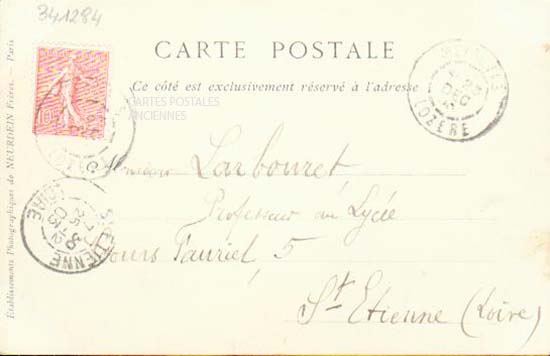 341284
CARTE POSTALE
Ce côté est exclusivement réservé à l'adresse
CARTES POSTALES
ANCIENNES
Etablissements Photographiques de NEURDEIN Frères. — Paris
10
LOZÈRE
Monsieur Larbouret
Professeur au Lycée
Cours Fauriel, 5
St Etienne (Loire)
ST ETIENNE
LOIRE
25
03